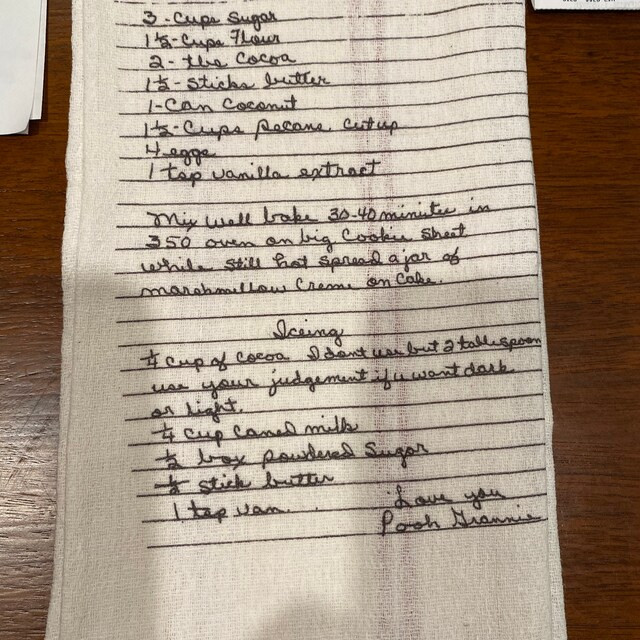 3-Cups Sugar
1½-Cups Flour
2-tbs Cocoa
1½-sticks butter
1-Can Coconut
1½-Cups pecans cut up
4 eggs
1 tsp vanilla extract
Mix well bake 30-40 minutes in
350 oven on big Cookie Sheet
while still hot spread a jar of
marshmallow Creme on Cake.
Iceing
¼ cup of cocoa I dont use but 2 tablespoon
use your judgement if u want dark
or light.
¼ cup caned milk
½ box powdered Sugar
½ stick butter
1 tsp van...
Love you
Pooh Grannie